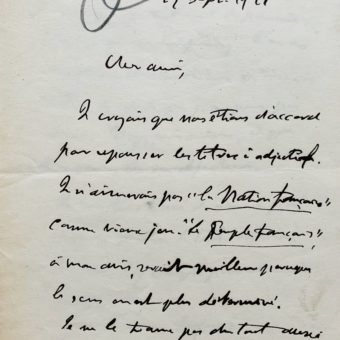 Sept. 19
Cher ami,
Je croyais que nous étions d'accord
pour repousser les titres à adjectifs.
Je n'aimerais pas "la Nation française"
comme "Le Peuple français",
à mon avis, serait meilleur parce que
le sens en est plus déterminé.
Je ne le trouve pas du tout aussi